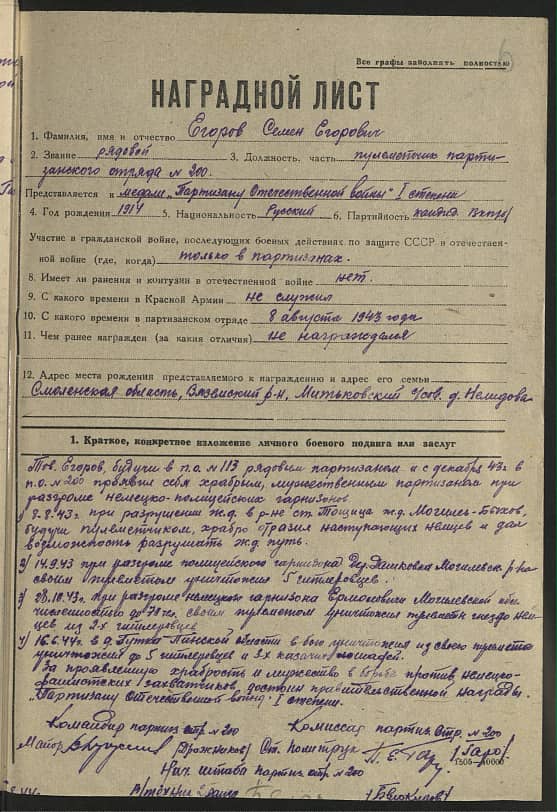 6
Все графы заполнять полностью
НАГРАДНОЙ ЛИСТ
1. Фамилия, имя и отчество Егоров Семен Егорович
2. Звание рядовой 3. Должность, часть пулеметчик парти-
занского отряда № 200.
Представляется к медали "Партизану Отечественной войны" I степени
4. Год рождения 1914 5. Национальность Русский 6. Партийность кандид. ВКП/б/
Участие в гражданской войне, последующих боевых действиях по защите СССР и отечествен-
ной войне (где, когда) только в партизанах.
8. Имеет ли ранения и контузии в отечественной войне нет.
9. С какого времени в Красной Армии не служил
10. С какого времени в партизанском отряде 8 августа 1943 года
11. Чем ранее награжден (за какия отличия) не награждался
12. Адрес места рождения представляемого к награждению и адрес его семьи
Смоленская область, Вяземский р-н, Митьковский с/сов. д. Нелидова
1. Краткое, конкретное изложение личного боевого подвига или заслуг
Тов. Егоров, будучи в п.о. № 113 рядовым партизаном и с декабря 43 г. в
п.о. № 200 проявил себя храбрым, мужественным партизаном при
разгроме немецко-полицейских гарнизонов
1) 8.8.43 г. при разрушении ж.д. в р-не ст. Тощица ж.д. Могилев-Быхов,
будучи пулеметчиком, храбро отразил наступающих немцев и дал
возможность разрушать ж.д. путь.
2) 14.9.43 при разгроме полицейского гарнизона дер. Дашковка Могилевск. р-на
своим пулеметом уничтожил 5 гитлеровцев.
3) 28.10.43 г. при разгроме немецкого гарнизона Могилевской обл.
численностью до 70 ч. своим пулеметом уничтожил гнездо нем-
цев из 2-х гитлеровцев
4) 16.6.44 г. в д. Пинской области в бою уничтожил из своего пулемета
уничтожил до 5 гитлеровцев и 3х лошадей.
За проявленную храбрость и мужество в борьбе против немецко-
фашистских захватчиков, достоин правительственной награды.
"Партизану Отечественной войны" I степени.
Командир партиз. отр. № 200 Комиссар партиз. отр. № 200
Майор /Дрожжков/ Ст. политрук /Гаро/
Нач. штаба партиз. отр. № 200